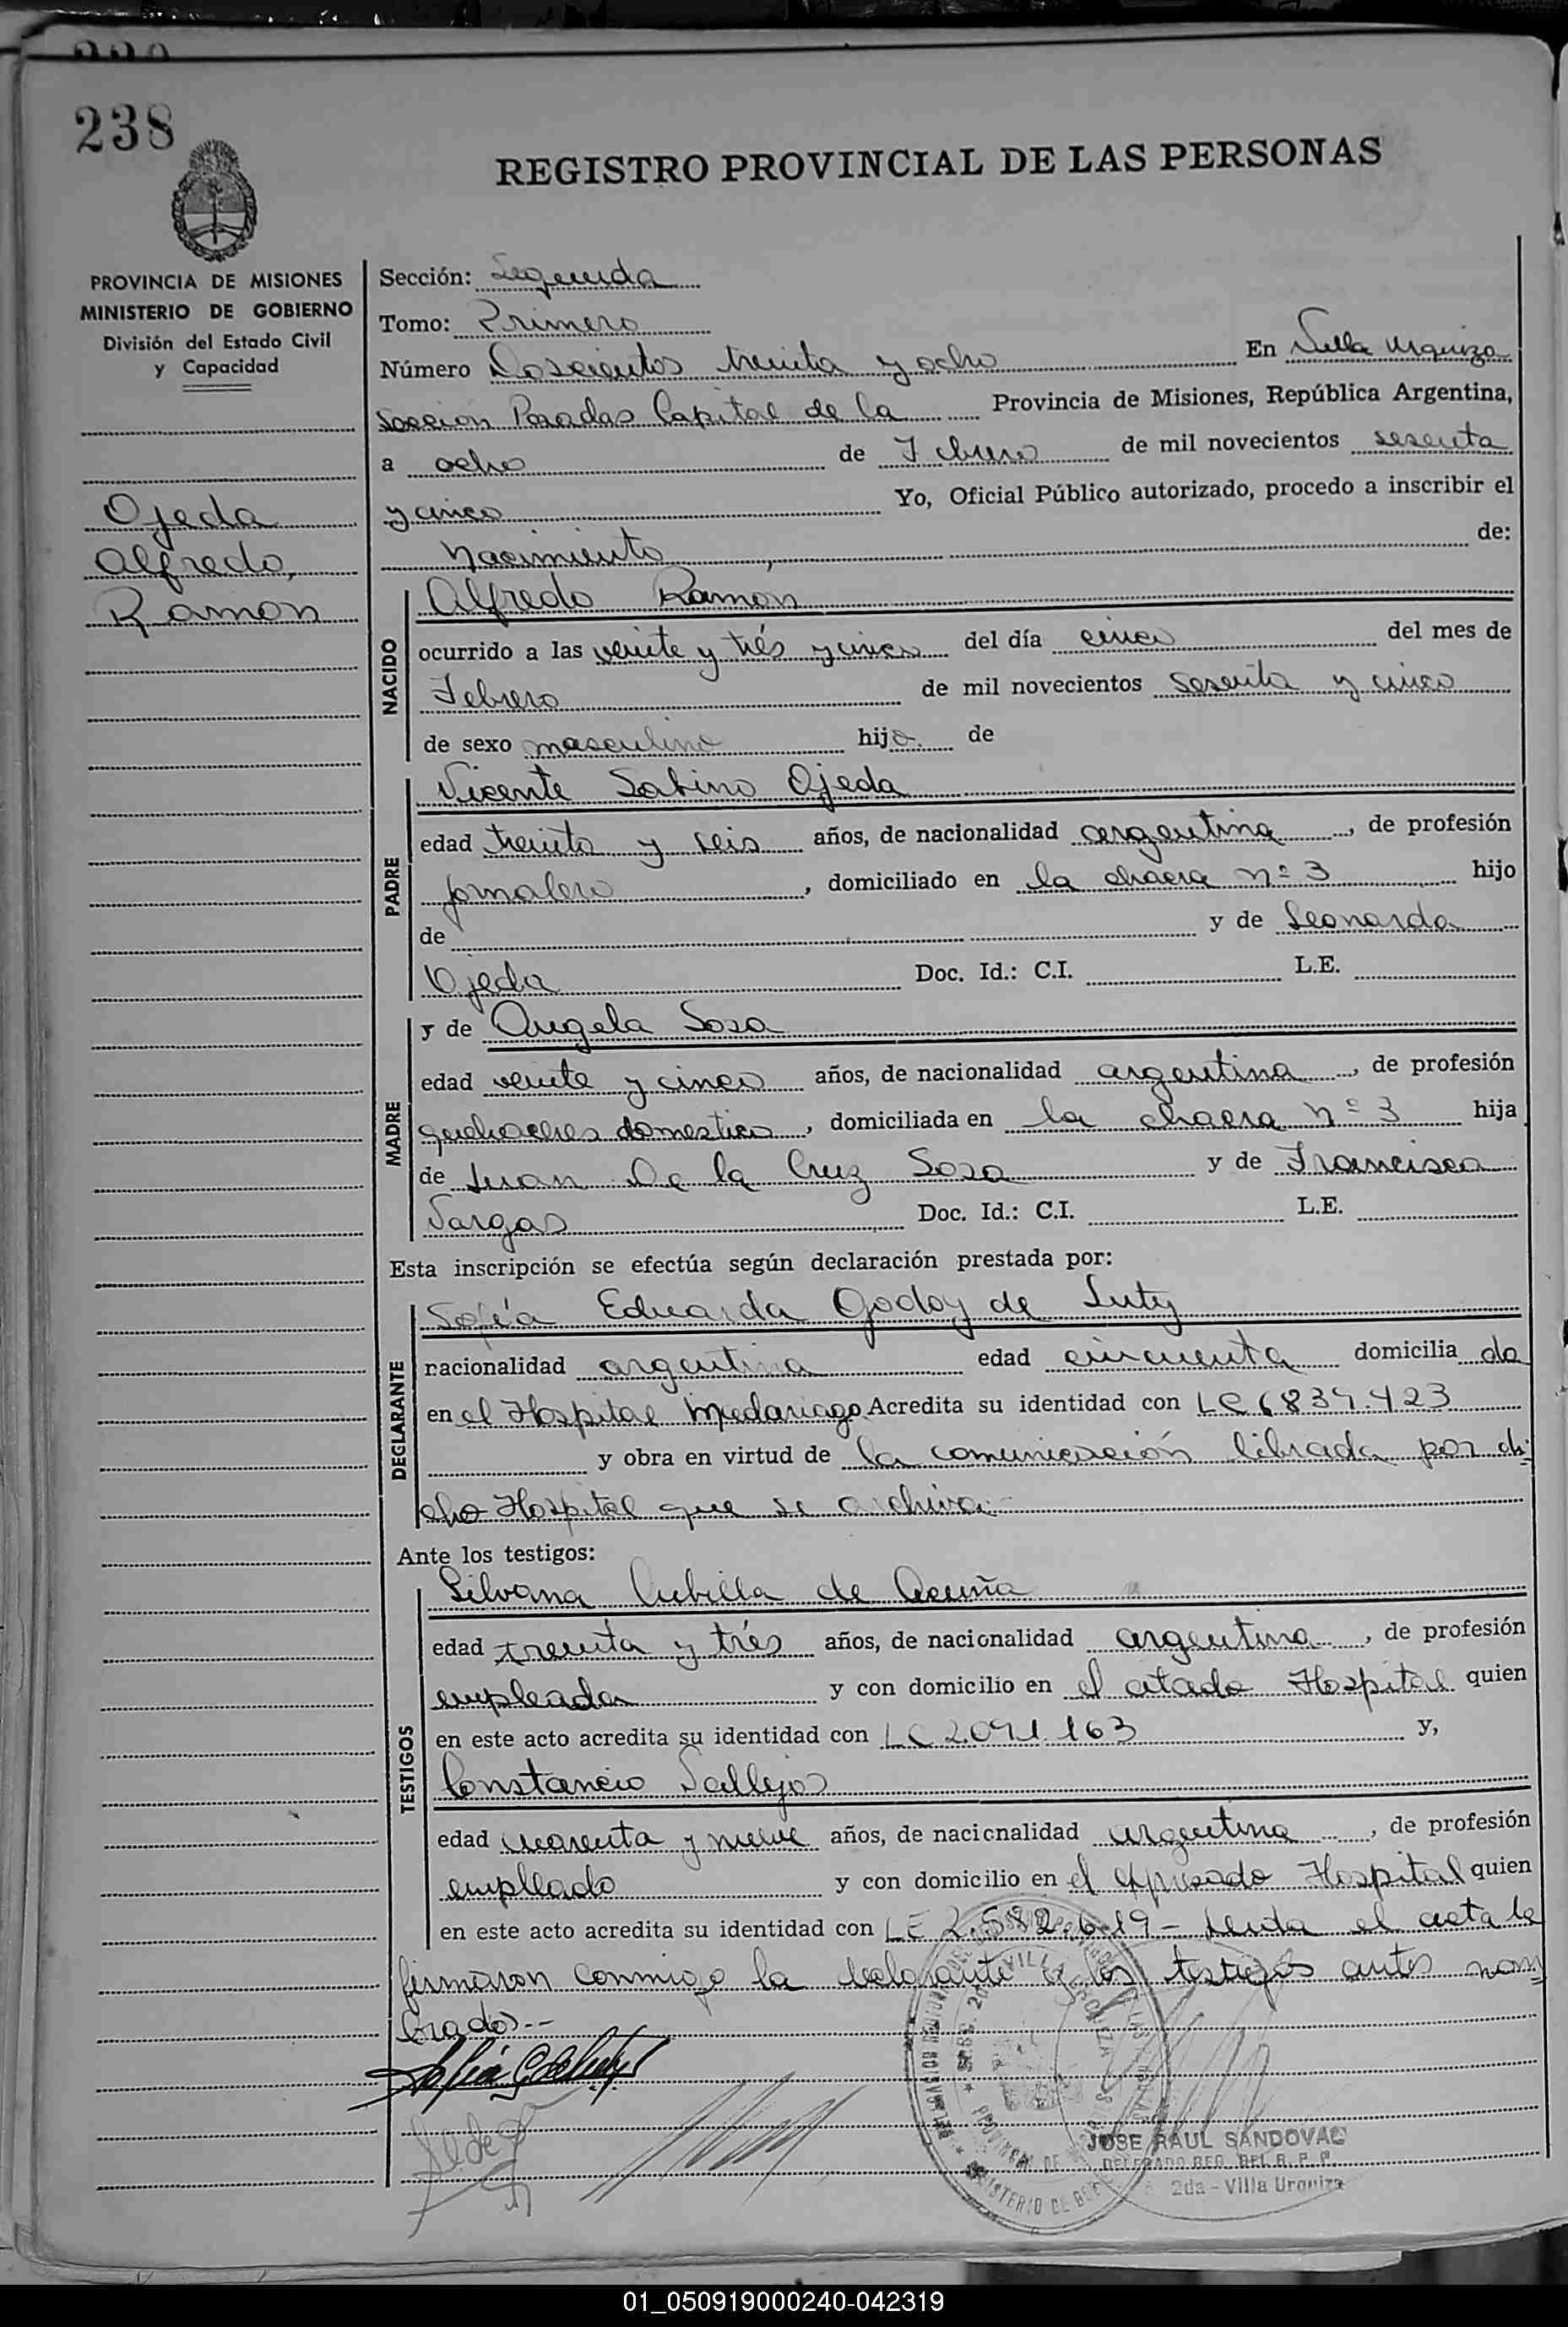 238
REGISTRO PROVINCIAL DE LAS PERSONAS
PROVINCIA DE MISIONES
MINISTERIO DE GOBIERNO
División del Estado Civil
y Capacidad
Ojeda
Alfredo,
Ramon
Sección: Segunda
Tomo: Primero
Número Doscientos treinta y ocho En Villa Urquiza
sección Posadas Capital de la Provincia de Misiones, República Argentina,
a ocho de Febrero de mil novecientos sesenta
y cinco Yo, Oficial Público autorizado, procedo a inscribir el
nacimiento, de:
NACIDO
Alfredo Ramón
ocurrido a las veinte y trés y cinco del día cinco del mes de
Febrero de mil novecientos sesenta y cinco
de sexo masculino hijo de
PADRE
Vicente Sabino Ojeda
edad treinta y seis años, de nacionalidad argentina, de profesión
jornalero, domiciliado en la chacra nº 3 hijo
de y de Leonarda
Ojeda Doc. Id.: C.I. L.E.
MADRE
y de Angela Sosa
edad veinte y cinco años, de nacionalidad argentina, de profesión
quehaceres domestico, domiciliada en la chacra nº 3 hija
de Juan De la Cruz Sosa y de Francisca
Vargas Doc. Id.: C.I. L.E.
Esta inscripción se efectúa según declaración prestada por:
DECLARANTE
Sofía Eduarda Godoy de Luty
nacionalidad argentina edad cincuenta domicilia da
en el Hospital Madariaga Acredita su identidad con LC 6834.423
y obra en virtud de la comunicación librada por di-
cho Hospital que se archiva.-
Ante los testigos:
TESTIGOS
Silvana Cubilla de Acuña
edad treinta y trés años, de nacionalidad argentina, de profesión
empleada y con domicilio en el citado Hospital quien
en este acto acredita su identidad con LC 2.091.163 y,
Constancio Vallejos
edad cuarenta y nueve años, de nacionalidad argentina, de profesión
empleado y con domicilio en el expresado Hospital quien
en este acto acredita su identidad con LE 2.582.619 - Leida el acta la
firmaron conmigo la declarante y los testigos antes nom
brados.--
JOSE RAUL SANDOVAL
DELEGADO REG. DEL R. P. P.
2da - Villa Urquiza
01_050919000240-042319